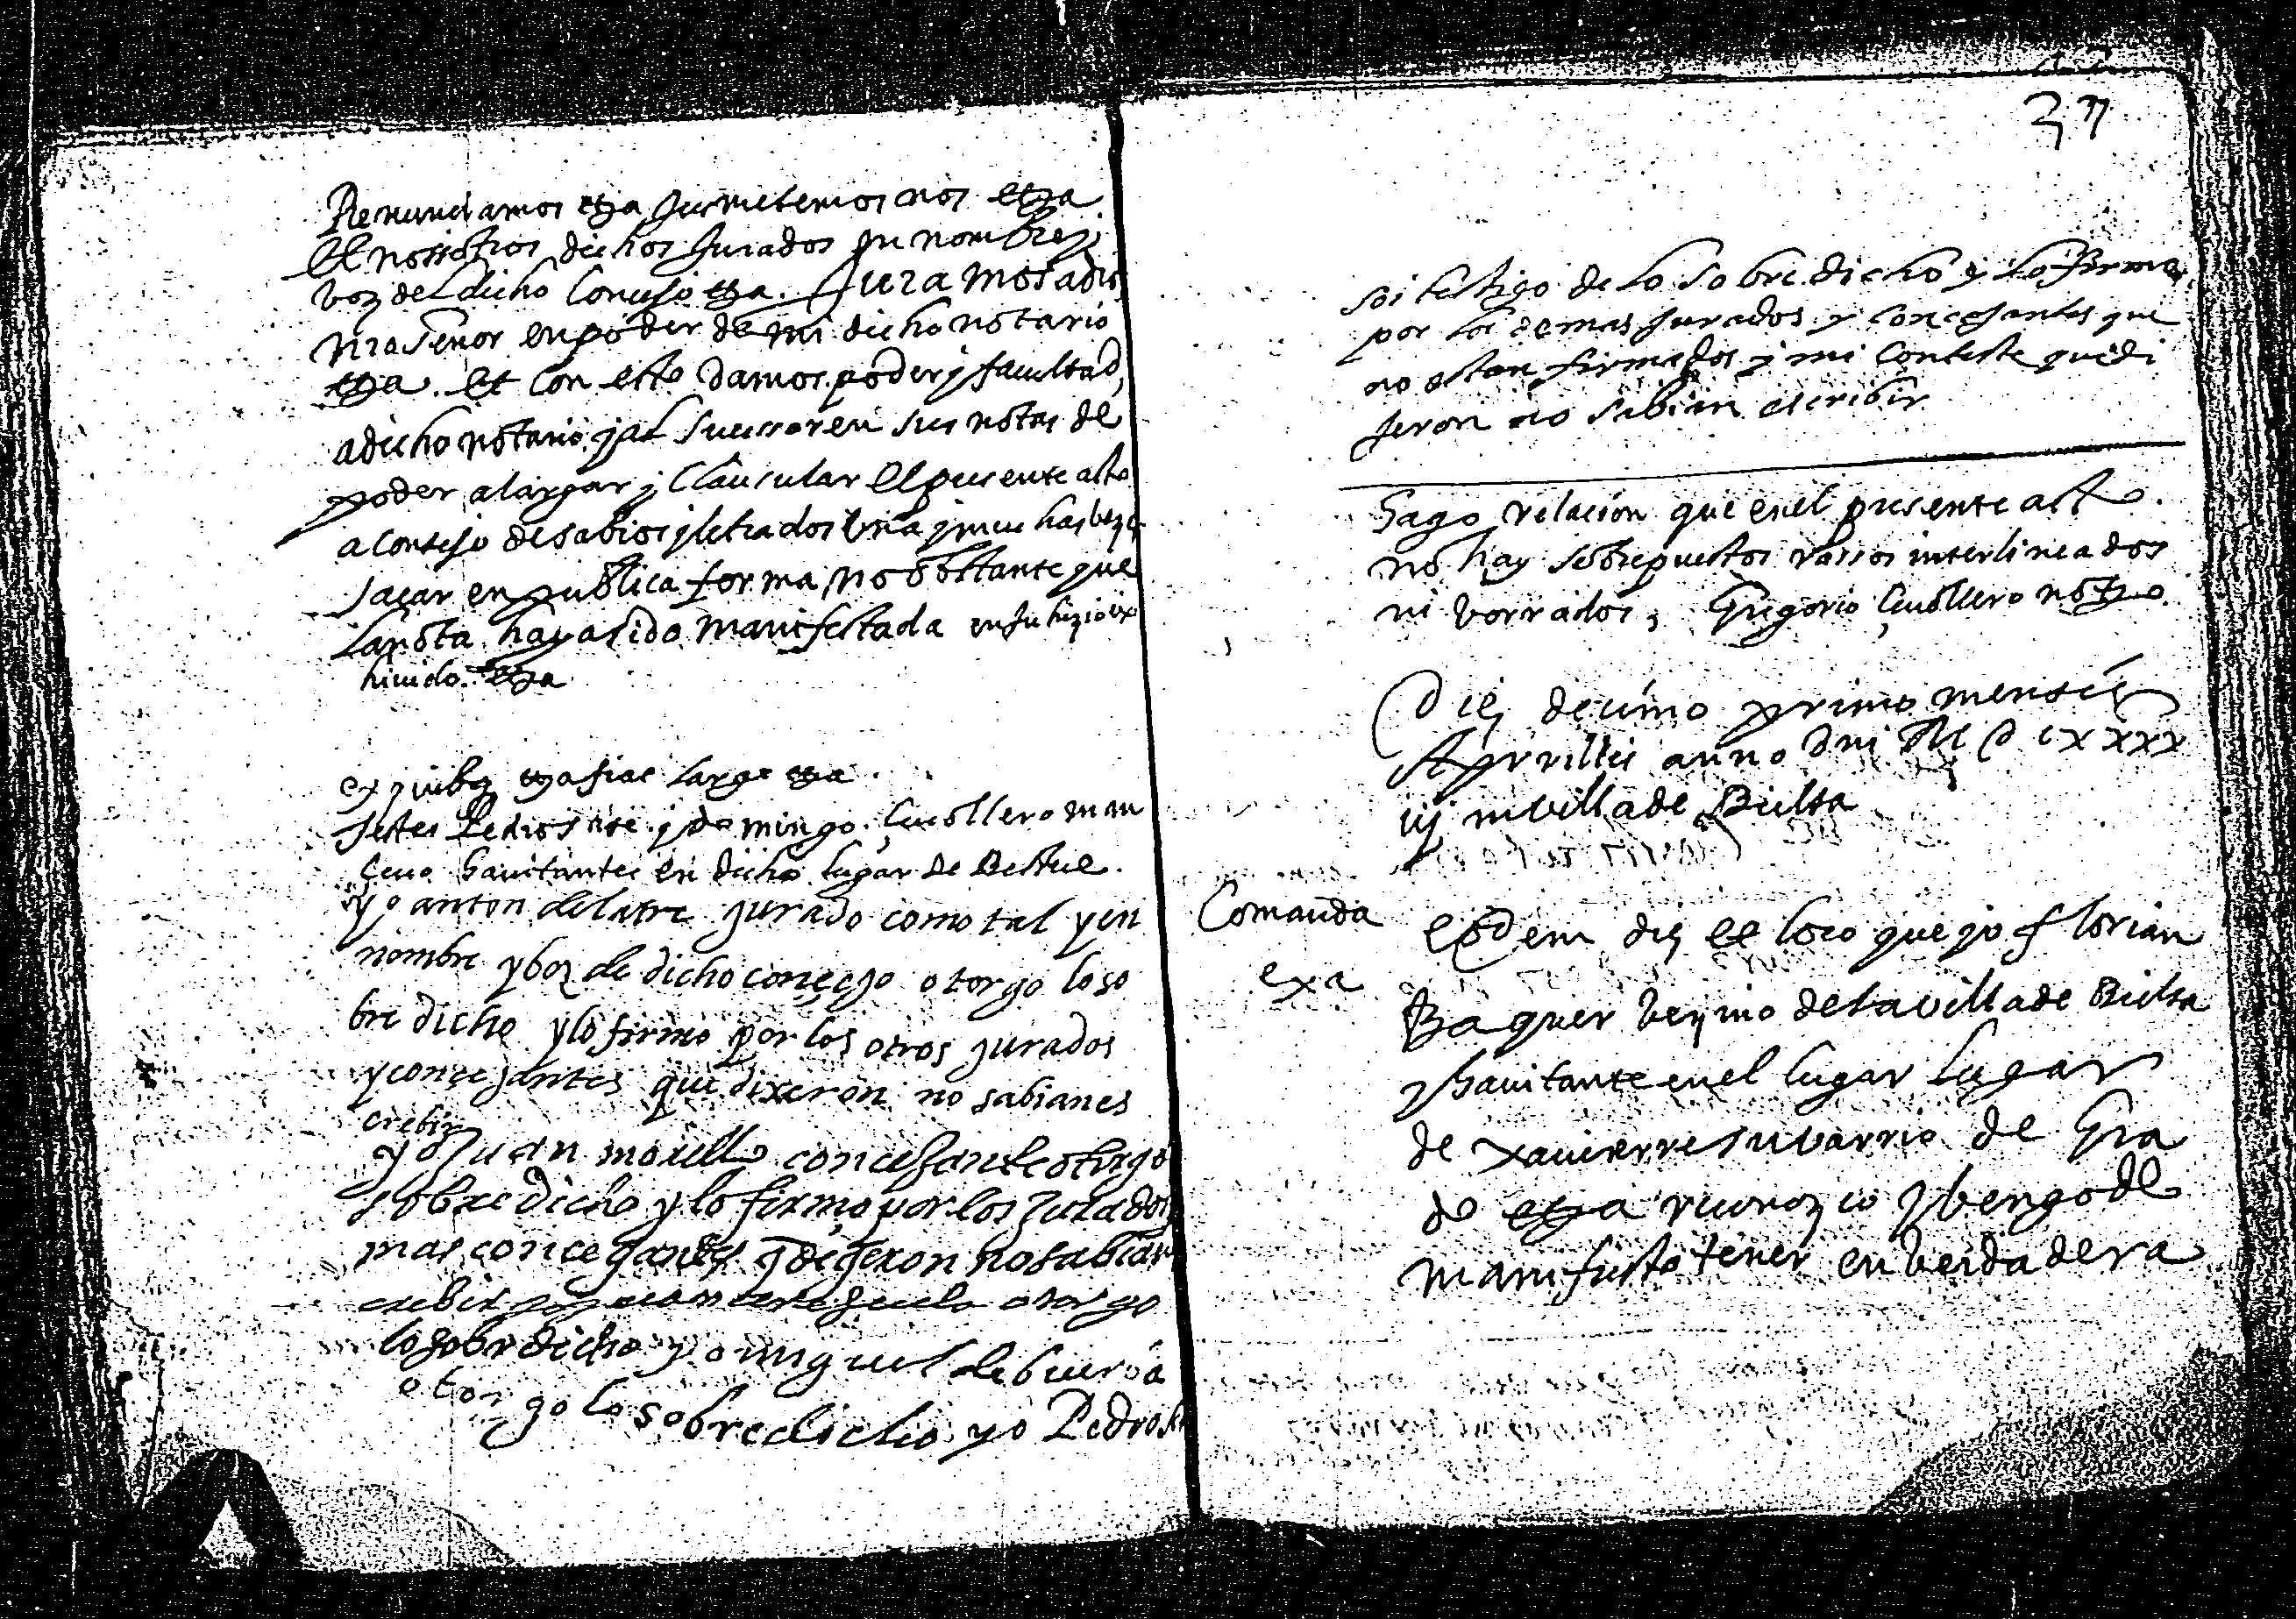 Renunciamos etza susmetemos nos etza
Et nosotros dichos Jurados en nombre y
boz del dicho Concejo etza. Jura mos a dios
nro Señor en poder de mi dicho notario
etza. et con esto Damos poder y facultad
a dicho notario y al sucessor en sus notas de
poder alargar y Clausular el presente acto
a Consejo de sabios y letrados una y muchas bezes
sacar en publica forma no obstante que
la nota haya sido manifestada en Juhizio ex
hiuido. etza
ex quibus etza fiat large etza.
testes Pedro y domingo Cuollero man
cebo hauitantes en dicho lugar de Bestue.
yo anton de latre jurado como tal y en
nombre y boz de dicho concejo otorgo lo so
bre dicho y lo firmo por los otros jurados
y concejantes que dixeron no sabian es
crebir
yo Juan morillo concejante otorgo
sobredicho y lo firmo por los Jurados
mas concegantes q degeron no sabian
crebir yo juan cerezuela otorgo
lo sobredicho yo miguel de buerba
otorgo lo sobredicho yo Pedro
37
soi testigo de lo sobre dicho y lo firmo
por los demas jurados y concejantes que
no estan firmados y mi conteste que di
jeron no sabian escribir
Hago relacion que en el presente acto.
no hay sobrepuestos rassos interlineados
ni borrados, Grigorio Cuollero notro
Die decimo primo mensis
Aprillis anno Dni M D C xxxx
iij in villa de Bielsa
Comanda
exa
eodem die et loco que yo Florian
Baquer bezino de la villa de Bielsa
y hauitante en el lugar lugar
de xauierre su barrio de Gra
do etza reconozco y bengo de
manifiesto tener en berdadera